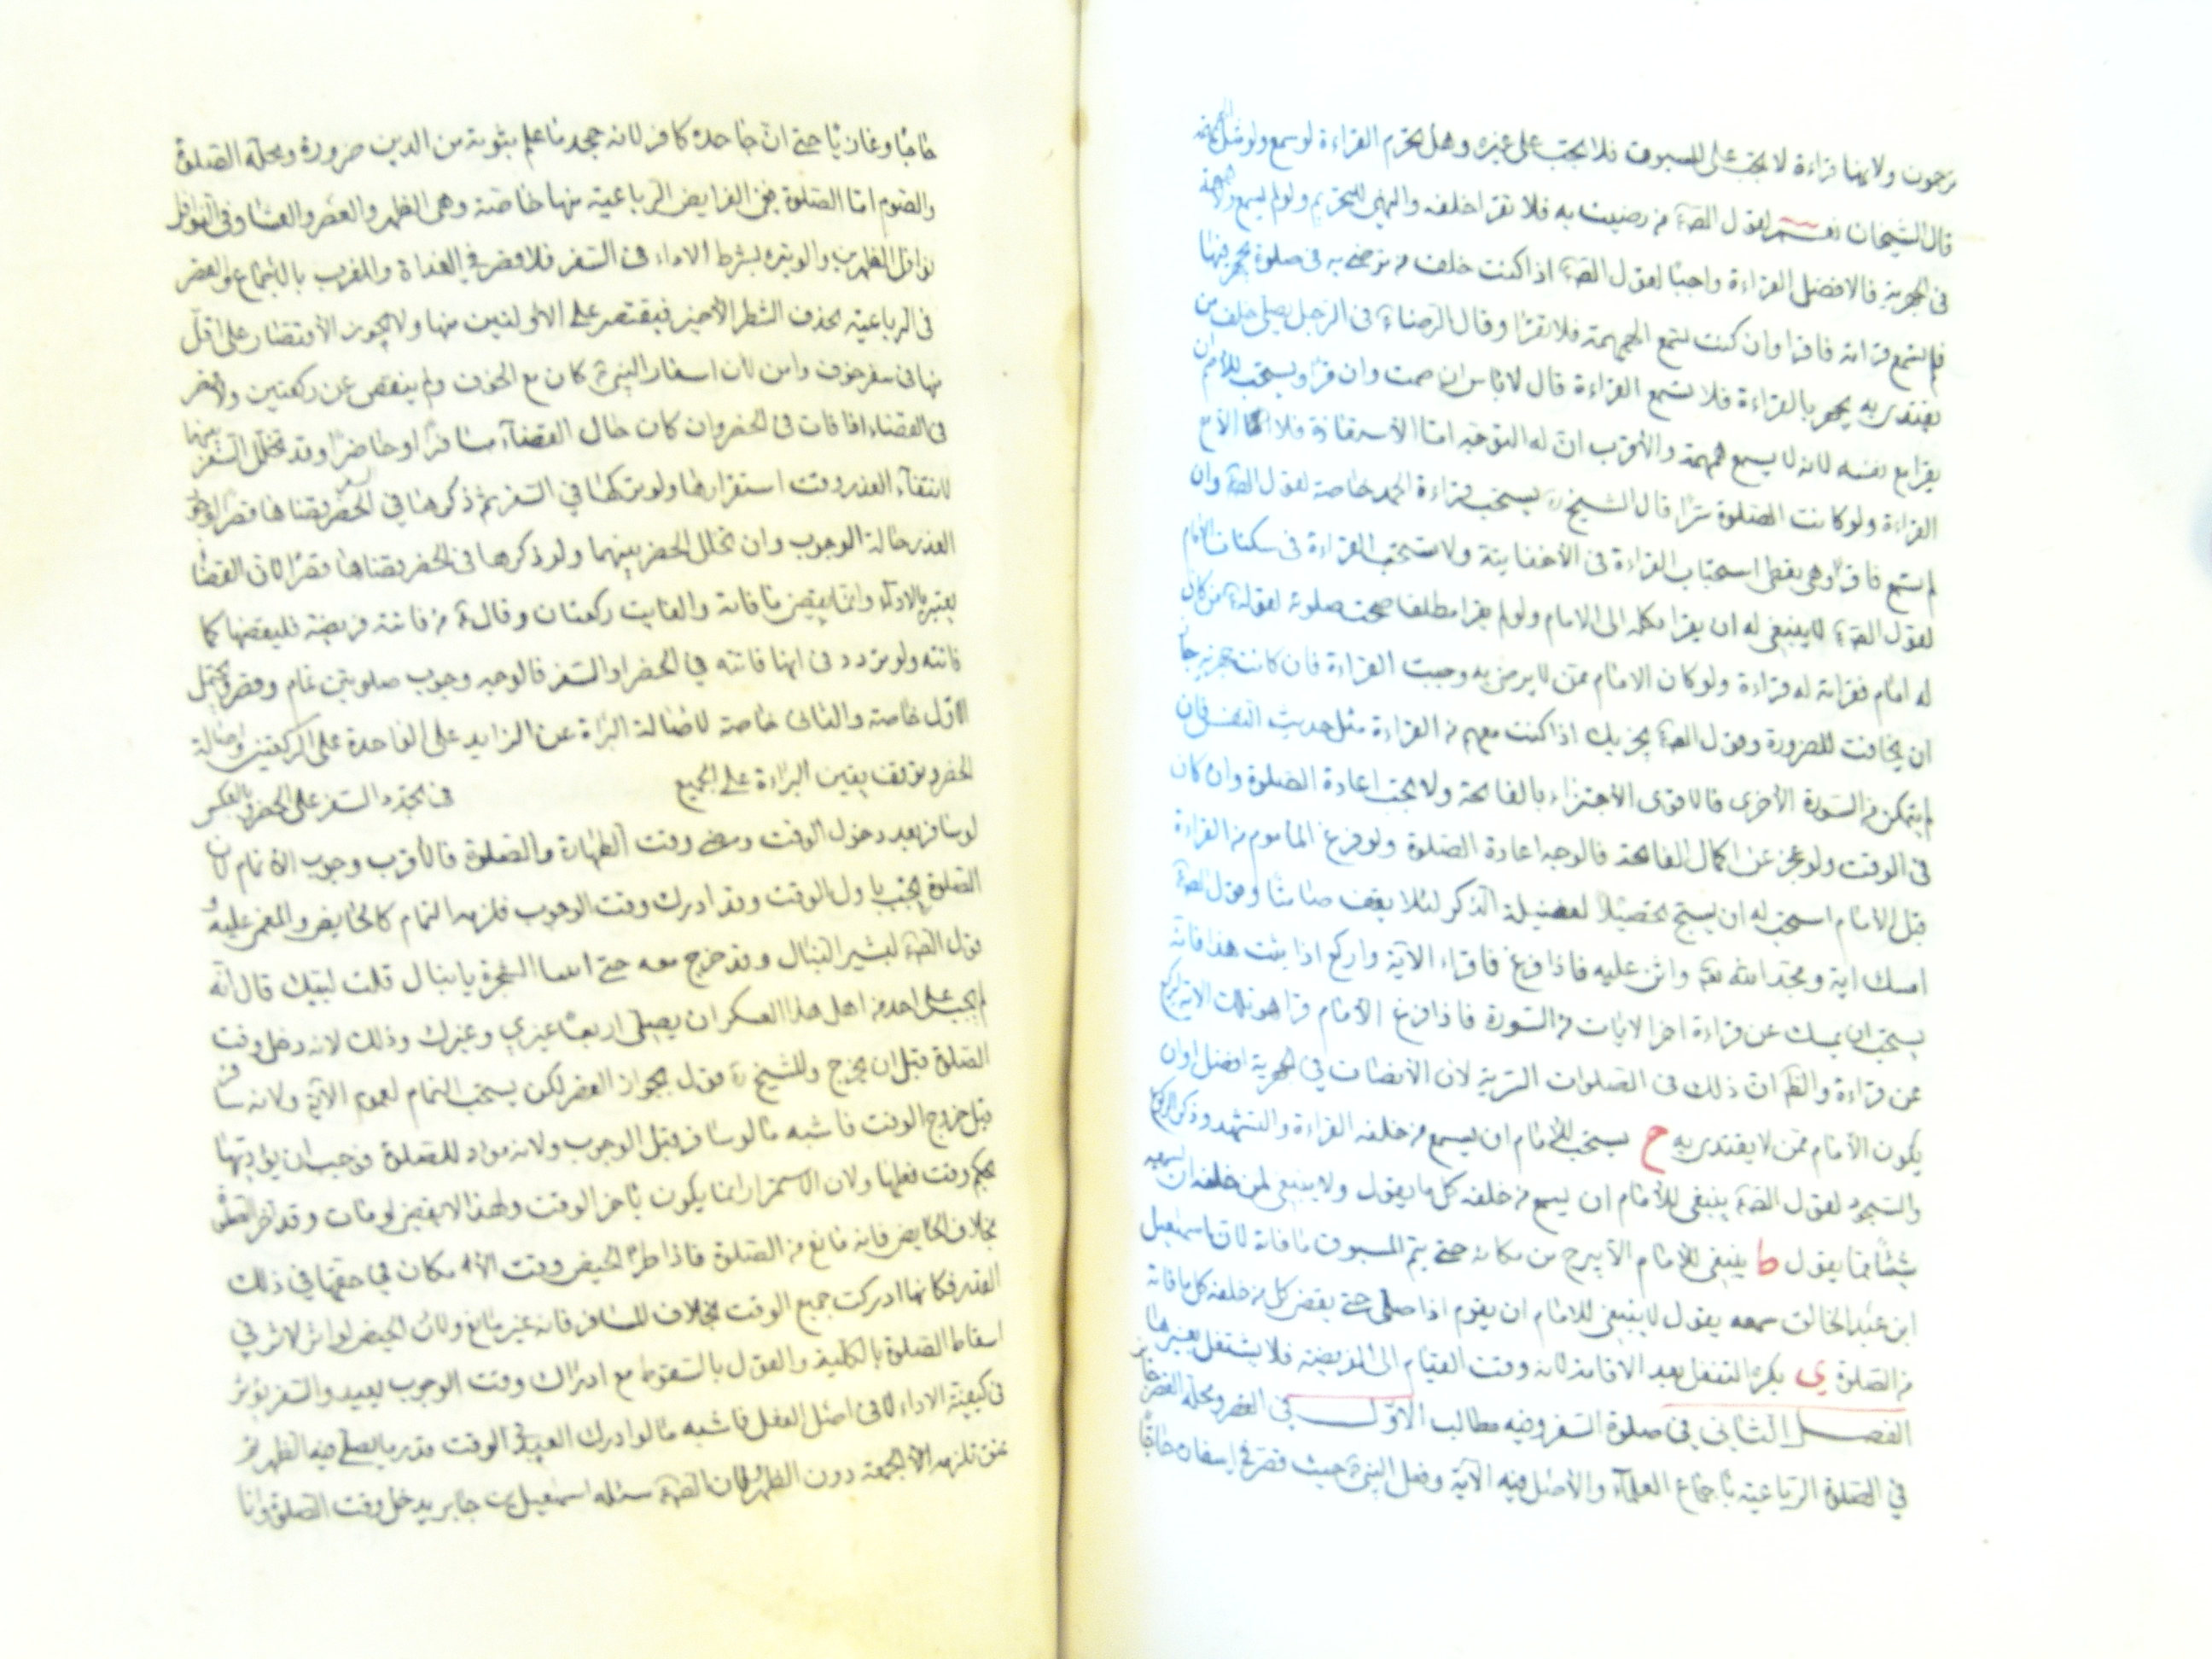 ترحمون ولانها قراءة لا تجب على المسبوق فلا تجب على غيره وهل تحرم القراءة لو سمع ولو مثل
قال الشيخان نعم لقول الصّ من رضيت به فلا تقرا خلفه والنهي للتحريم ولو لم يسمع ولا همهمة
في الجهرية فالافضل القراءة واجبا لقول الصّ اذا كنت خلف من ترضى به في صلوة يجهر فيها
فلم تسمع قراءته فاقرا وان كنت تسمع الهمهمة فلا تقرا وقال الرضا في الرجل يصلى خلف من
يقتدى به يجهر بالقراءة فلا تسمع القراءة قال لاباس ان صمت وان قرا ويستحب للامام ان
يقرا مع نفسه لانه لا يسمع همهمة والاقرب ان له التوجه اما الاستعاذة فلا اما الا مع
القراءة ولو كانت الصلوة سرا قال الشيخ يستحب قراءة الحمد خاصة لقول الصّ وان
لم تسمع فاقرا وهى يعطى استحباب القراءة في الأخفاتية ولا تستحب القراءة في سكتات الامام
لقول الصّ لا ينبغى له ان يقرا يكله الى الامام ولو لم يقرا مطلقا صحت صلوته لقوله من كان
له امام فقراءته له قراءة ولو كان الامام ممن لا يرضى به وجبت القراءة فان كانت جهرية جاز
ان يخافت للضرورة وقول الصّ يجزيك اذا كنت معهم من القراءة مثل حديث النفس فان
لم يتمكن من السورة الأخرى فالاقوى الأجتزاء بالفاتحة ولا يجب اعادة الصلوة وان كان
في الوقت ولو عجز عن اكمال الفاتحة فالوجه اعادة الصلوة ولو فرغ الماموم من القراءة
قبل الامام استحب له ان يسبح تحصيلا لفضيلة الذكر لئلا يقف صامتا وقول الصّ
امسك اية ومجد الله تع واثن عليه فاذا فرغ فاقراء الآية واركع اذا ثبت هذا فانه
يستحب ان يمسك عن قراءة اخر الايات من السورة فاذا فرغ الامام قرا هو تلك الاية ليركع
عن قراءة والظ ان ذلك في الصلوات السرية لان الأنصات في الجهرية افضل او ان
يكون الأمام ممن لا يقتدى به ح يستحب للامام ان يسمع من خلفه القراءة والتشهد وذكر الركوع
والسجود لقول الصّ ينبغى للأمام ان يسمع من خلفه كل ما يقول ولا ينبغى لمن خلفه ان يسمعه
شيئا مما يقول ط ينبغى للامام الا يبرح من مكانه حتى يتم المسبوق ما فاته لان اسمعيل
ابن عبد الخالق سمعه يقول لا ينبغى للامام ان يقوم اذا صلى حتى يقضى كل من خلفه كل ما فاته
من الصلوة ى يكره التنفل بعد الاقامة لانه وقت القيام الى الفريضة فلا يشتغل بغيرها
الفصل الثاني في صلوة السفر وفيه مطالب الاوّل في القصر ومحله القصر جايز
في الصلوة الرباعية باجماع العلماء والأصل فيه الآية وفعل النبى حيث قصر في اسفاره حاجّا
حاجا وغازيا حتى ان جاحده كافر لانه جحد ما علم ثبوته من الدين ضرورة ومحله الصلوة
والصوم اما الصلوة ففى الفرايض الرباعية منها خاصّة وهى الظهر والعصر والعشا وفى النوافل
نوافل الظهرين والوتيرة بشرط الاداء في السفر فلا قصر في الغداة والمغرب بالاجماع والقصر
في الرباعية بحذف الشطر الأخير فيقتصر على الاولتين منها ولا يجوز الأقتصار على اقل
منها في سفر خوف وامن لان اسفار النبى كان مع الخوف ولم ينقص عن ركعتين ولا قصر
في القضاء اذا فات في الحضر وان كان حال القضاء مسافرا او حاضرا وقد تخلل السفر بينهما
لانتفاء العذر وقت استقرارها ولو تركها في السفر ثم ذكرها في الحضر قضاها قصرا لوجود
العذر حالة الوجوب وان تخلل الحضر بينهما ولو ذكرها في الحضر قضاها قصرا لان القضا
يعتبر بالاداء وانما يقضى ما فاته والفايت ركعتان وقال من فاتته فريضة فليقضها كما
فاتته ولو تردد في انها فاتته في الحضر او السفر فالوجه وجوب صلوتين تمام وقصر ويحتمل
الاول خاصة والثانى خاصة لاصالة البراة عن الزايد على الواحدة على الركعتين واصالة
الحضر وتوقف يقين البراءة على الجميع في تجدد السفر على الحضر وبالعكس
لو سافر بعد دخول الوقت ومضى وقت الطهارة والصلوة فالاقرب وجوب الاتمام لان
الصلوة تجب باول الوقت وقد ادرك وقت الوجوب فلزمه التمام كالحايض والمغمى عليه و
قول الصّ لبشير النبال وقد خرج معه حتى اتيا الشجرة يا نبال قلت لبيك قال انه
لم يجب على احد من اهل هذا العسكر ان يصلى اربعا غيرى وغيرك وذلك لانه دخل وقت
الصلوة قبل ان يخرج وللشيخ قول بجواز القصر لكن يستحب التمام لعموم الآية ولانه سافر
قبل خروج الوقت فاشبه ما لو سافر قبل الوجوب ولانه مؤد للصلوة فوجب ان يؤديها
بحكم وقت فعلها ولان الاستقرار انما يكون باخر الوقت ولهذا لا يقضى لو مات وقد اخر الصلوة
بخلاف الحايض فانه مانع من الصلوة فاذا طرا الحيض وقت الامكان في حقها في ذلك
القدر فكانها ادركت جميع الوقت بخلاف المسافر فانه غير مانع ولان الحيض لو اثر لاثر في
اسقاط الصلوة بالكلية والقول بالسقوط مع ادراك وقت الوجوب بعيد والسفر يؤثر
في كيفية الاداء لا في اصل الفعل فاشبه ما لو ادرك العبد في الوقت قدر ما يصلى فيه الظهر
عتق تلزمه الجمعة دون الظهر ولان الصّ سئله اسمعيل بن جابر يدخل وقت الصلوة وانا